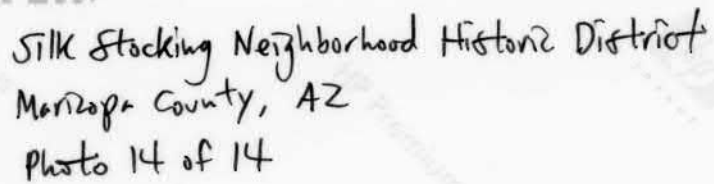 Silk Stocking Neighborhood Historic District
Maricopa County, AZ
Photo 14 of 14